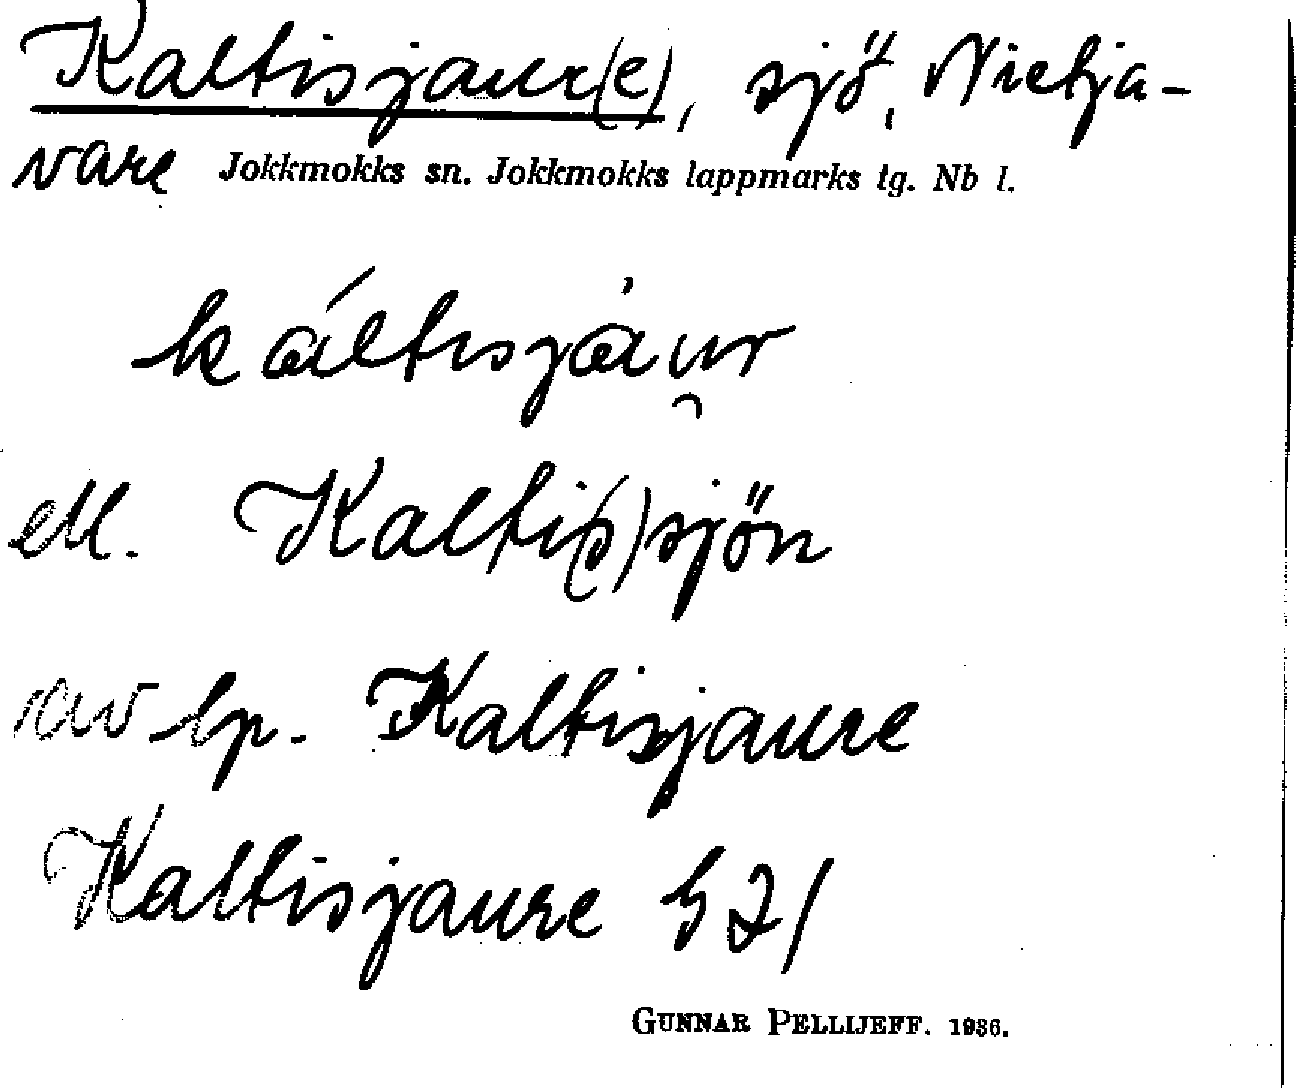 Kaltisjaur(e), sjö, Nietja-
vare Jokkmokks sn. Jokkmokks lappmarks tg. Nb l.
káltisjàur̯
ell. Kalti(s)sjön
av lp. Kaltisjaure
Kaltisjaure h 21
GUNNAR PELLIJEFF. 1936.